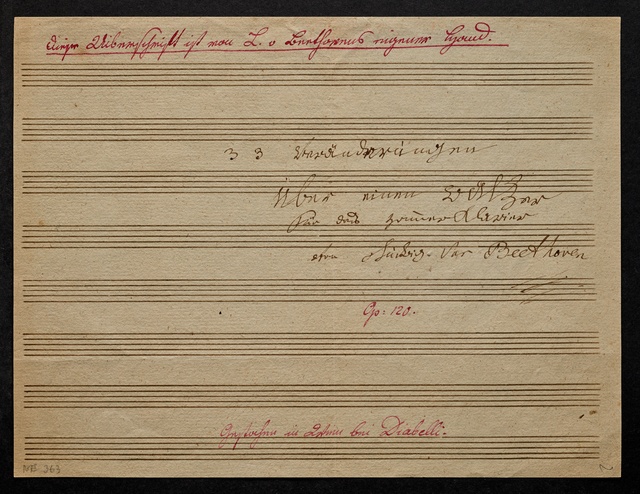 Diese Überschrift ist von L. v Beethovens eigener Hand.
33 Veränderungen
über einen Walzer
für das
Ludwig van Beethoven
Op: 120.
Gestochen in Wien bei Diabelli.
NE 263